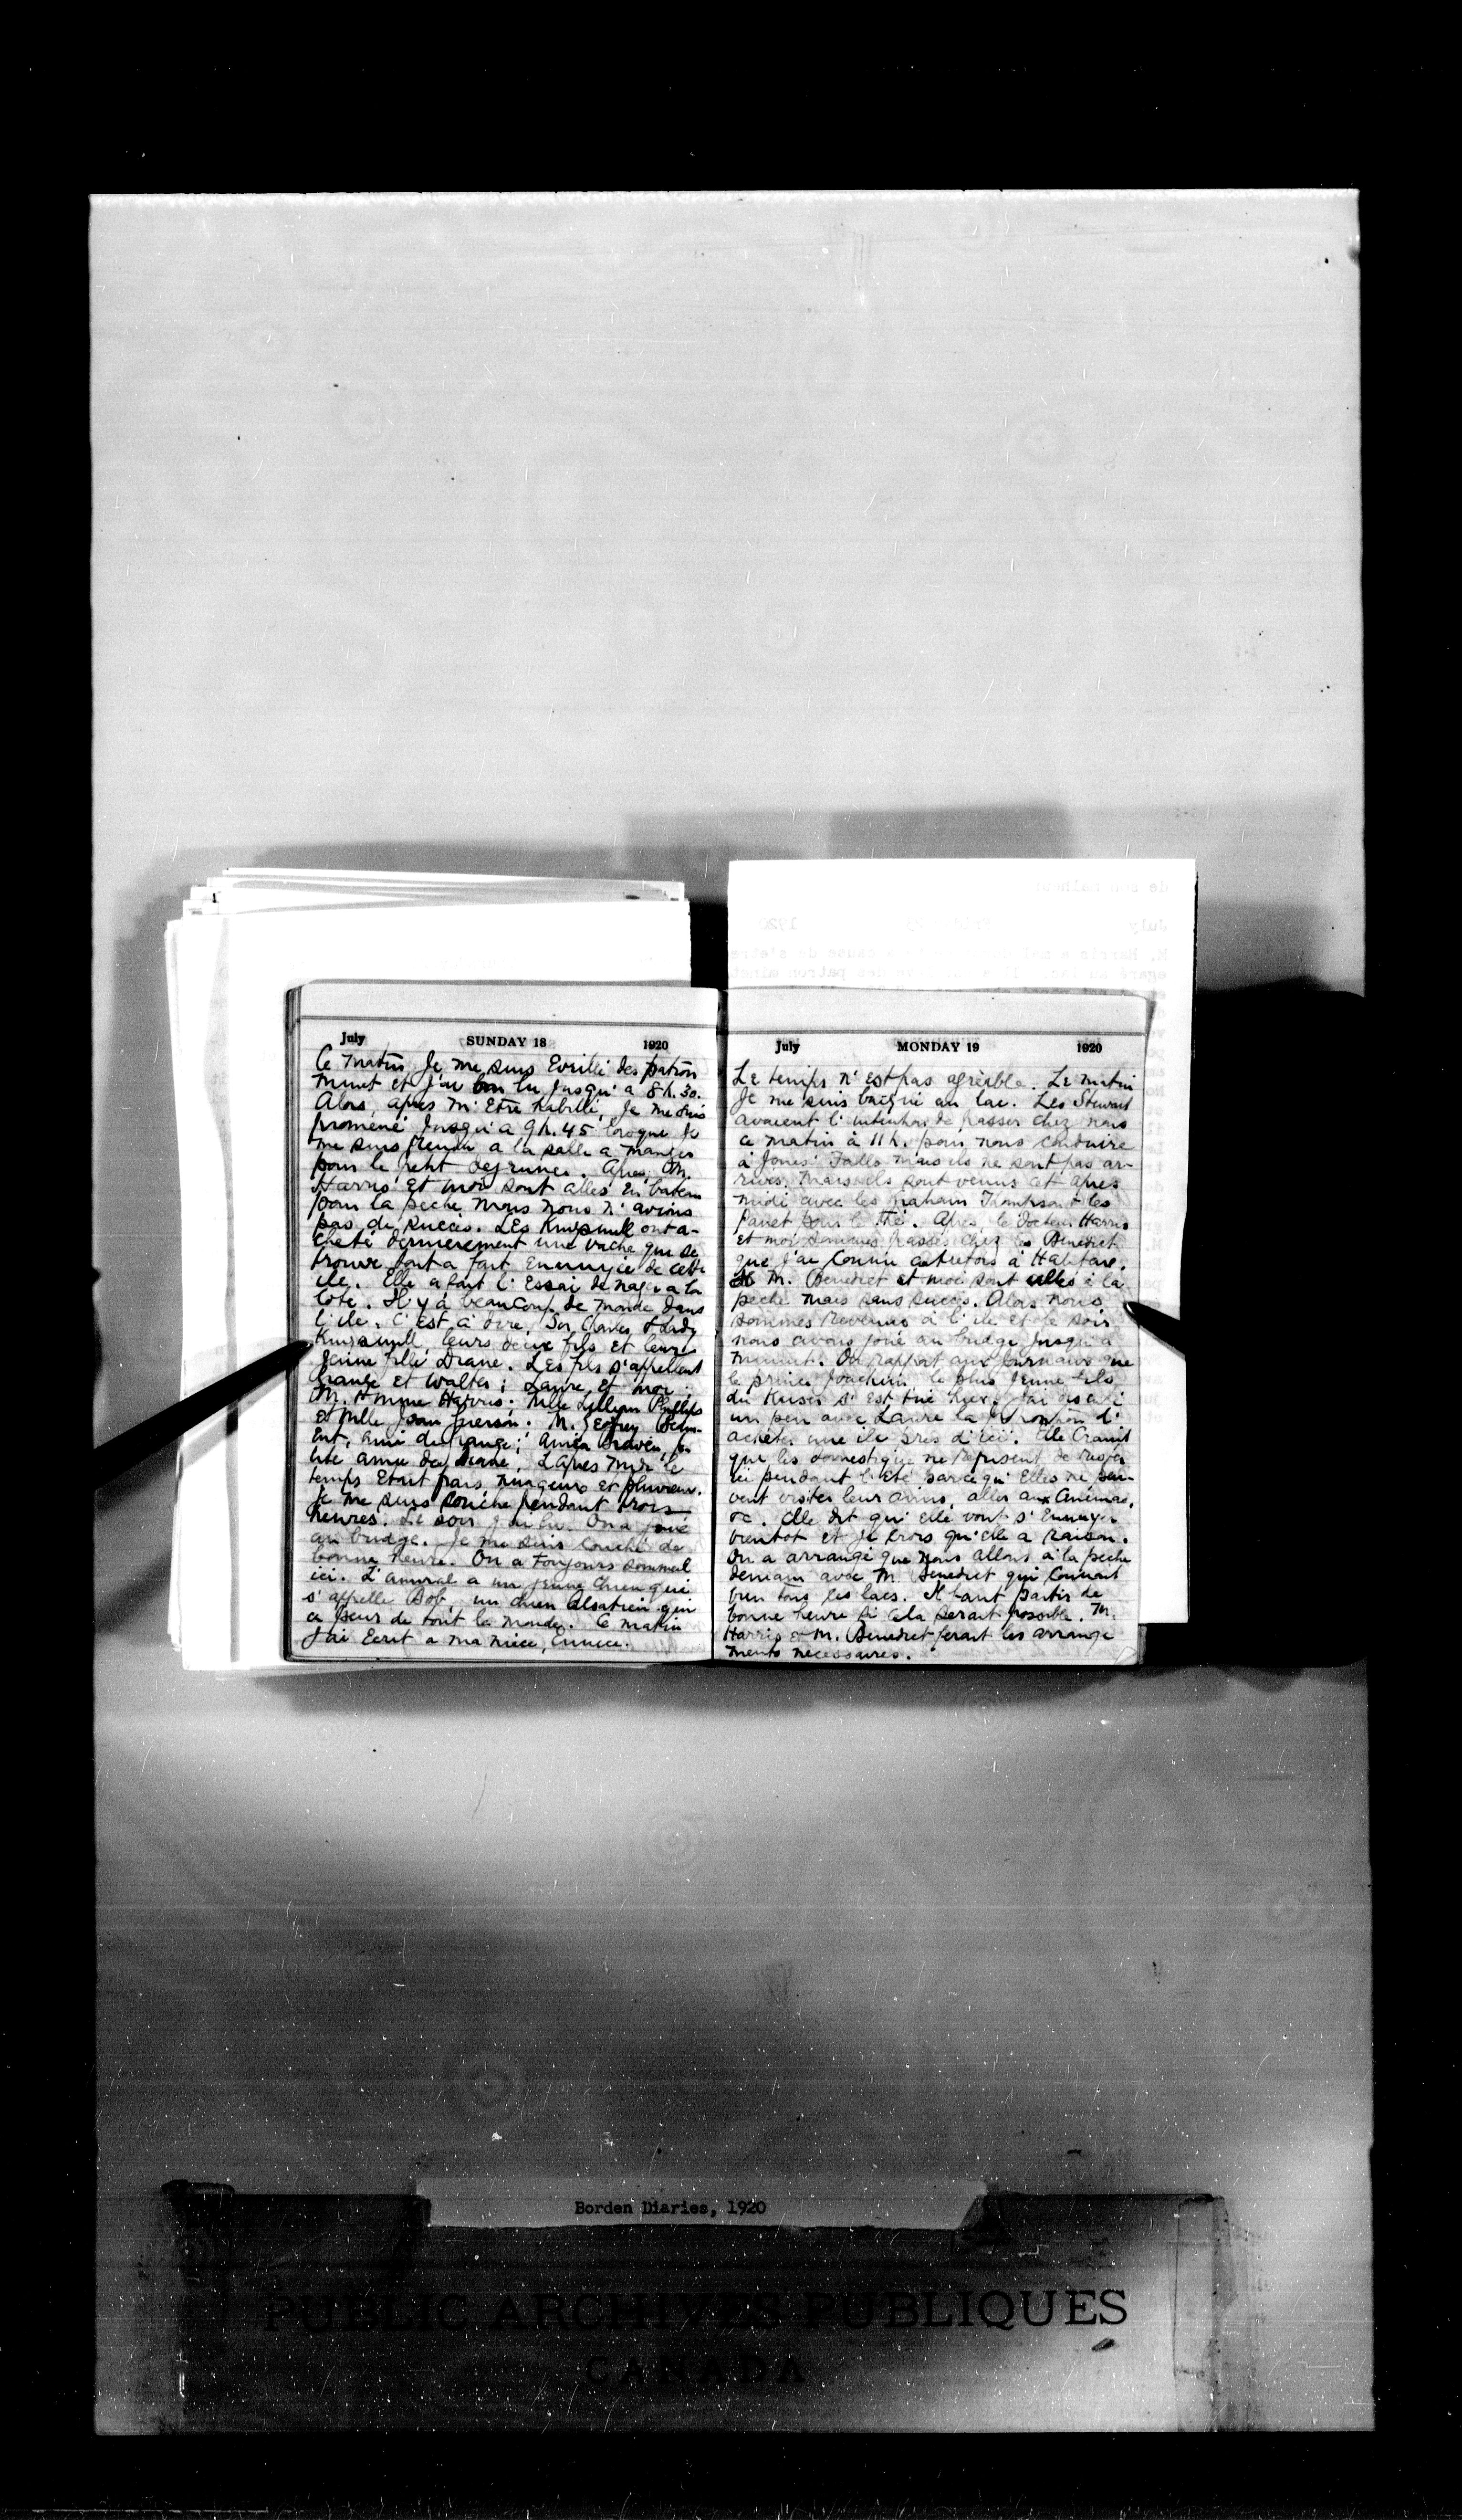 July SUNDAY 18 1920
Ce matin je me suis Eveillé des patron
minet et j'ai lu jusqu'a 8 h. 30.
Alors, apres m'Etre habillé, je me suis
promené jusqu'a 9 h. 45 lorsque je
me suis rendu a la salle a manger
pour le petit dejeuner. Apres, M.
Harris et moi sont allés en bateau
pour la peche mais nous n'avions
pas de succès. LEs Kingsmill ont a-
cheté dernierement une vache qui se
trouve tout a fait Ennuyée de cette
ile. Elle a fait l'Essai de nager a la
cote. Il y a beaucoup de monde dans
l'ile. C'est a dire, Sir Charles & Lady
Kingsmill, leurs deux fils et leur
jeune fille Diane. LEs fils s'appellent
Grange et Walter; Laure et moi;
M. et Mme Harris; Mlle Lillian Phillips
et Mlle Grierson; M.
Ent, ami de Grange;
tite amie de Diane. L'apres midi le
temps Etait frais, nuageux et pluvieux.
Je me suis couché pendant trois
heures. Le soir j'ai lu. On a joué
au bridge. Je me suis couché de
bonne heure. On a toujours sommeil
ici. L'amiral a un jeune chien qui
s'appelle Bob, un chien alsatien qui
a peur de tout le monde. Ce matin
j'ai Ecrit a ma niece, Eunice.
July MONDAY 19 1920
LE temps n'est pas agréable. Le matin
Je me suis baigné au lac. LEs Stewart
avaient l'intention de passer chez nous
ce matin à 11 h. pour nous conduire
à Jones' Falls mais ils ne sont pas ar-
rivés. Mais ils sont venus cet apres
midi avec les Graham Thompson & les
Panet pour le thé. Apres, le docteur Harris
et moi sommes passés chez les Benedict
que j'ai connu autrefois à Halifax.
M. Benedict et moi sont allés à la
peche mais sans succès. Alors nous
sommes revenus à l'ile et le soir
nous avons joué au bridge jusqu'a
minuit. On rapport aux journaux que
le prince Joachim le plus jeune fils
du Kaiser s'est tué hier. J'ai discuté
un peu avec Laure la d'
acheter une ile près d'ici. Elle craint
que les domestique ne refusent de rester
ici pendant l'été parcequ'Elles ne peu-
vent visiter leur amis, aller aux Cinemas,
&c. Elle dit qu'elle vont s'Ennuyer
bientot et je crois qu'elle a raison.
On a arrangé que nous allons à la peche
demain avec M. Benedict qui connait
bien tous les lacs. Il faut partir de
bonne heure si cela serait possible. M.
Harris & M. Benedict ferait les arrange
ments necessaires.
de son malheur
July 1920
Borden Diaries, 1920
PUBLIC ARCHIVES PUBLIQUES
CANADA